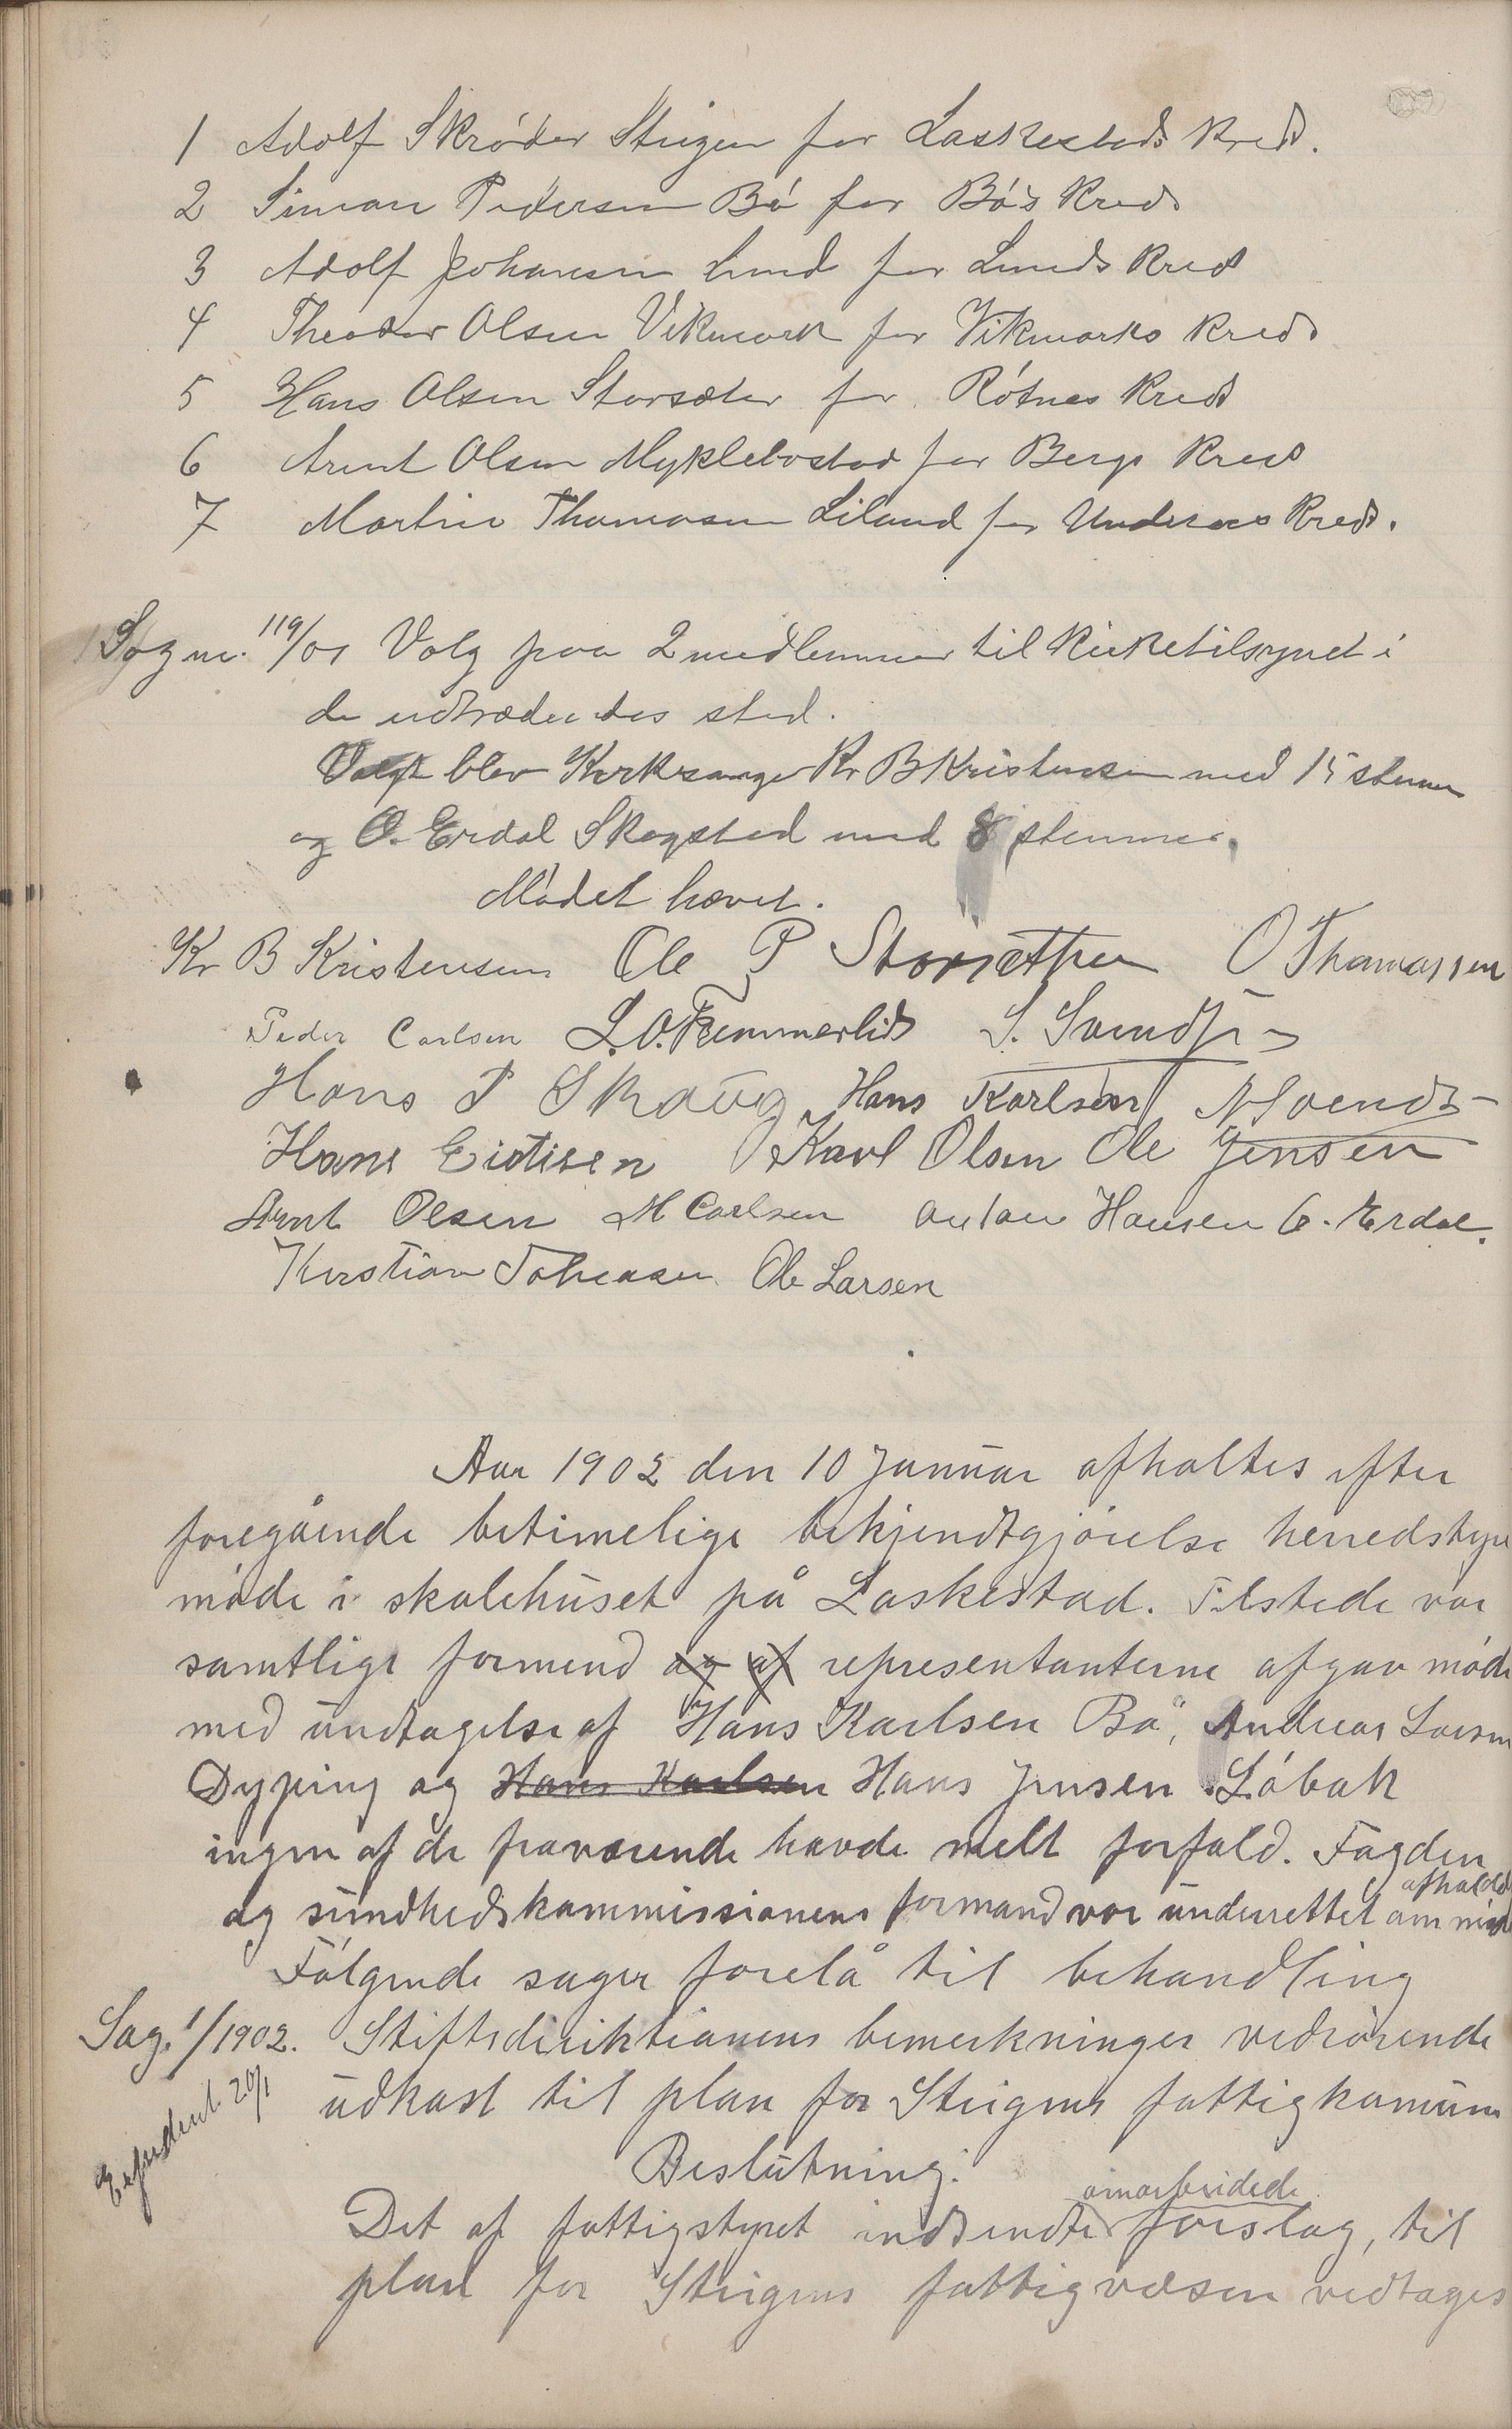 1 Adolf Skrøder Steigen for Laskestads Kreds.
2 Simon Pedersen Bø for Bø's Kreds
3 Adolf Johansen Lund for Lunds Kreds
4 Theodor Olsen Vikmark for Vikmarks Kreds
5 Hans Olsen Storsæter for Røtnes Kreds
6 Arent Olsen Myklebostad for Bergs Kreds
7 Martin Thomassen Liland for Kreds.
Sag nr. 119/01 Valg paa 2 medlemmer til Kirketilsynet i
de udtrædendes sted.
Valgt blev Kirkesanger Kr B Kristensen med 15 stemmer
og O. Erdal Skogstad med 8 stemmer.
Mødet hævet.
Kr B Kristensen Ole P Storsæther O Thomassen
Peder Carlsen L. O. Bremmerlid S. Svends
Hans P Skaug Hans Karlsen
Hans Eidisen Karl Olsen Ole Jensen
Arnt Olsen M Carlsen Anton Hansen O. Erdal.
Kirstian Johansen Ole Larsen
Aar 1902 den 10 Januar afholtes efter
foregående betimelige bekjendtgjörelse herredstyre
möde i skolehuset på Laskestad. Tilstede var
samtlige formend og af representanterne afgav möde
med undtagelse af Hans Karlsen Bö, Andreas Larsen
Dyping og Hans Karlsen Hans Jensen Löbak
ingen af de fraværende havde melt forfald. Fogden
og sundhedskommissionens formand var underrettet om mödets
afholdelse
Fölgende sager forelå til behandling
Sag. 1/1902. Stiftsdirektionens bemerkninger vedrörende
udkast til plan for Steigens fattigkomune
Expedert 20/1
Beslutning:
Det af fattigstyret indsendte omarbeidede forslag, til
plan for Steigens fattigvæsen vedtages